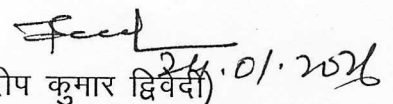 24.01.2026
ीप कुमार द्विवेदी)